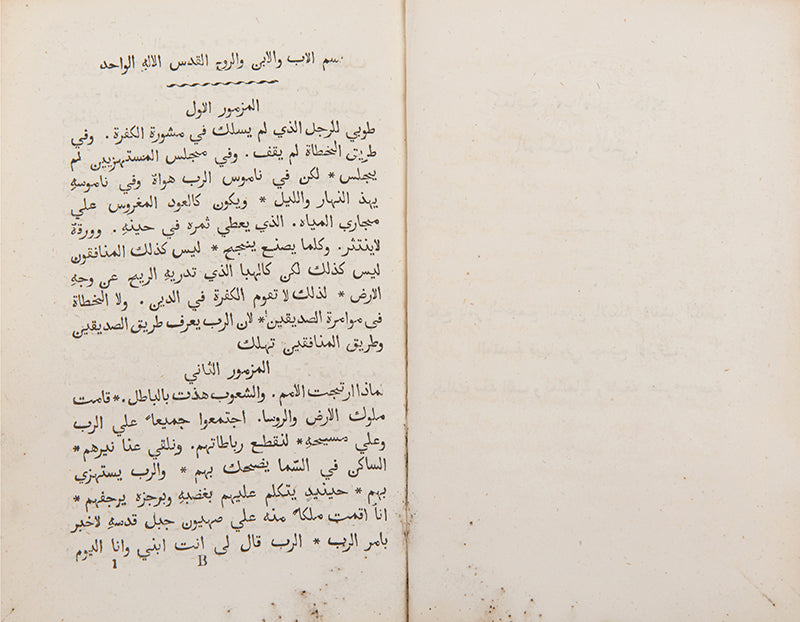 بسم الاب والابن والروح القدس الاله الواحد
المزمور الاول
طوبي للرجل الذي لم يسلك في مشورة الكفرة . وفي
طريق الخطاة لم يقف . وفي مجلس المستهزيين لم
يجلس * لكن في ناموس الرب هواة وفي ناموسهِ
يهذ النهار والليل * ويكون كالعود المغروس علي
مجاري المياه . الذي يعطي ثمره في حينهِ . وورقهٌ
لاينتثر . وكلما يصنع ينجح * ليس كذلك المنافقون
ليس كذلك لكن كالهبا الذي تدريه الريح عن وجهِ
الارض * لذلك لا تقوم الكفرة في الدين . ولا الخطاة
في موامرة الصديقين * لان الرب يعرف طريق الصديقين
وطريق المنافقين تهلك
المزمور الثاني
لماذا ارتجت الامم . والشعوب هذت بالباطل . * قامت
ملوك الارض والروسا . اجتمعوا جميعاً علي الرب
وعلي مسيحهِ * لنقطع رباطاتهم . ونلقي عنا نيرهم *
الساكن في السّما يضحك بهم * والرب يستهزي
بهم * حينيدٍ يتكلم عليهم بغضبهِ وبرجزه يرجفهم *
انا اقمت ملكاً منه علي صهيون جبل قدسهِ لاخبر
بامر الرب * الرب قال لي انت ابني وانا اليوم
1 B